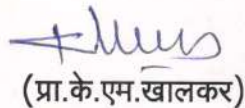 (प्रा.के.एम.खालकर)